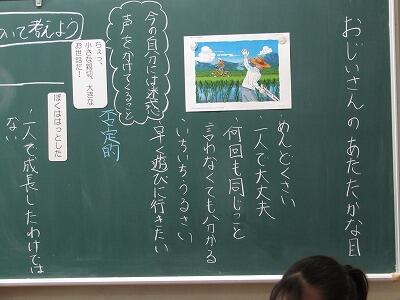 おじいさんのあたたかな目
めんどくさい
一人で大丈夫
何回も同じこと
言わなくても分かる
いちいちうるさい
早く遊びに行きたい
今の自分には迷惑
声をかけてくること
否定的
ちぇっ、
小さな親切、大きな
お世話だ!
ぼくははっとした
一人で成長したわけでは
ない
いて考えよう